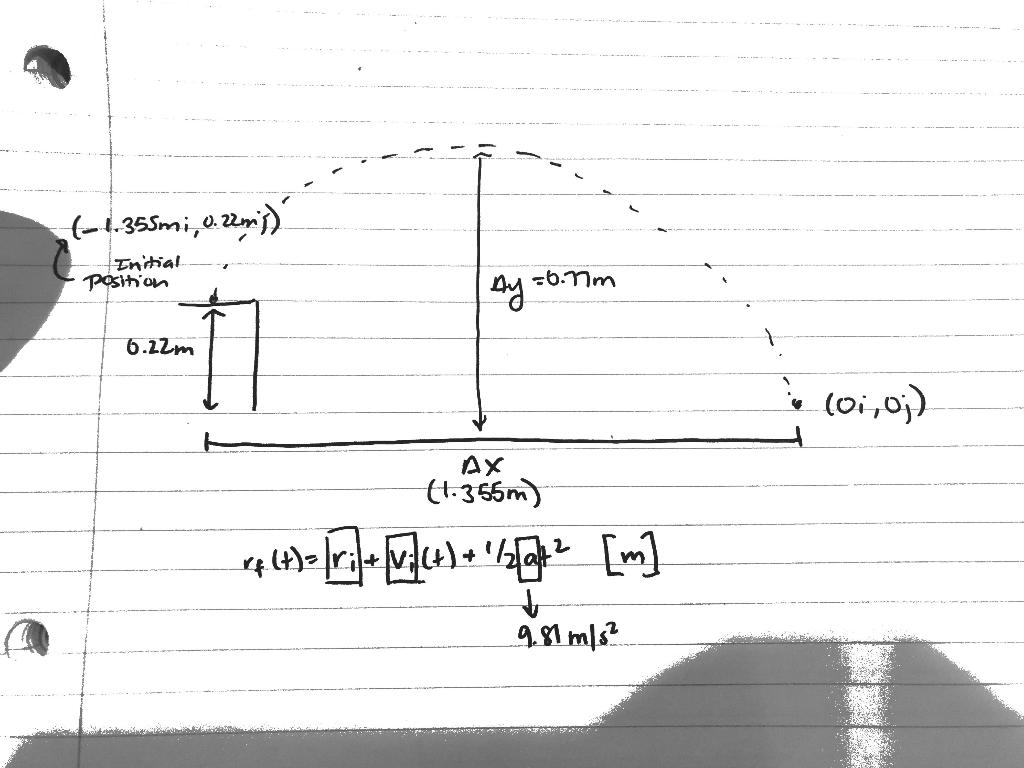 (-1.355mi, 0.22mj)
Initial
Position
0.22m
Δy = 0.77m
(0i, 0j)
Δx
(1.355m)
r_f(t) = r_i + v_i(t) + 1/2at² [m]
9.81 m/s²